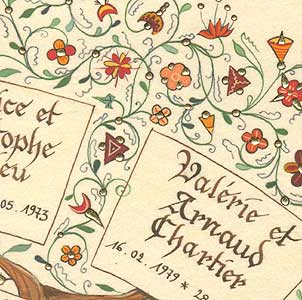 ice et
tophe
ieu
05.1973
Valérie et
Arnaud
Chartier
16.02.1979 * 28